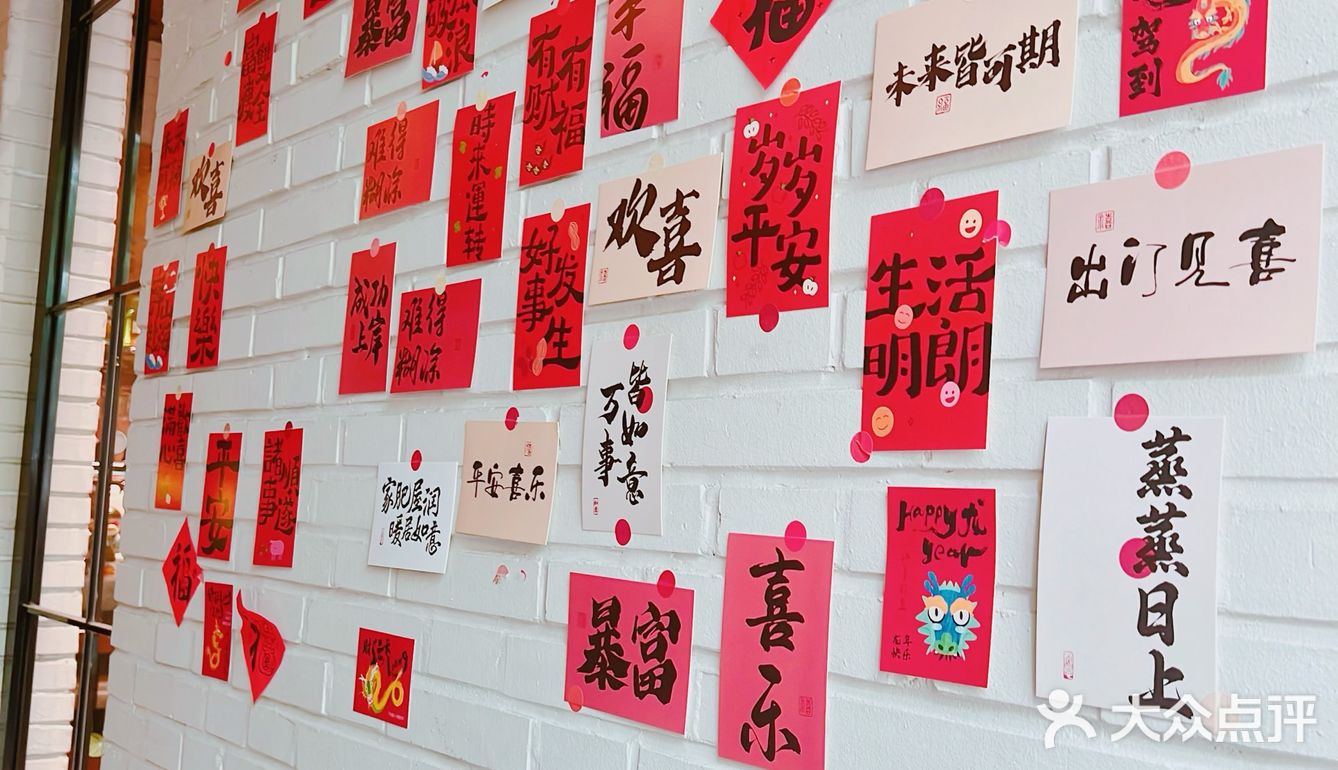 暴富
乘风
破浪
有有
财福
幸福
福
未来皆可期
驾
到
福慧
双全
欢喜
难得
糊涂
時来運转
欢喜
岁岁
平安
出门见喜
快樂
成功
上岸
难得
糊涂
好发
事生
生活
明朗
皆如意
万事
蒸蒸日上
满心
歡喜
平安
諸事
順遂
家肥屋润
暖居如意
平安喜乐
Happy龙
year
龙年
快乐
福
暴富
喜乐
大众点评